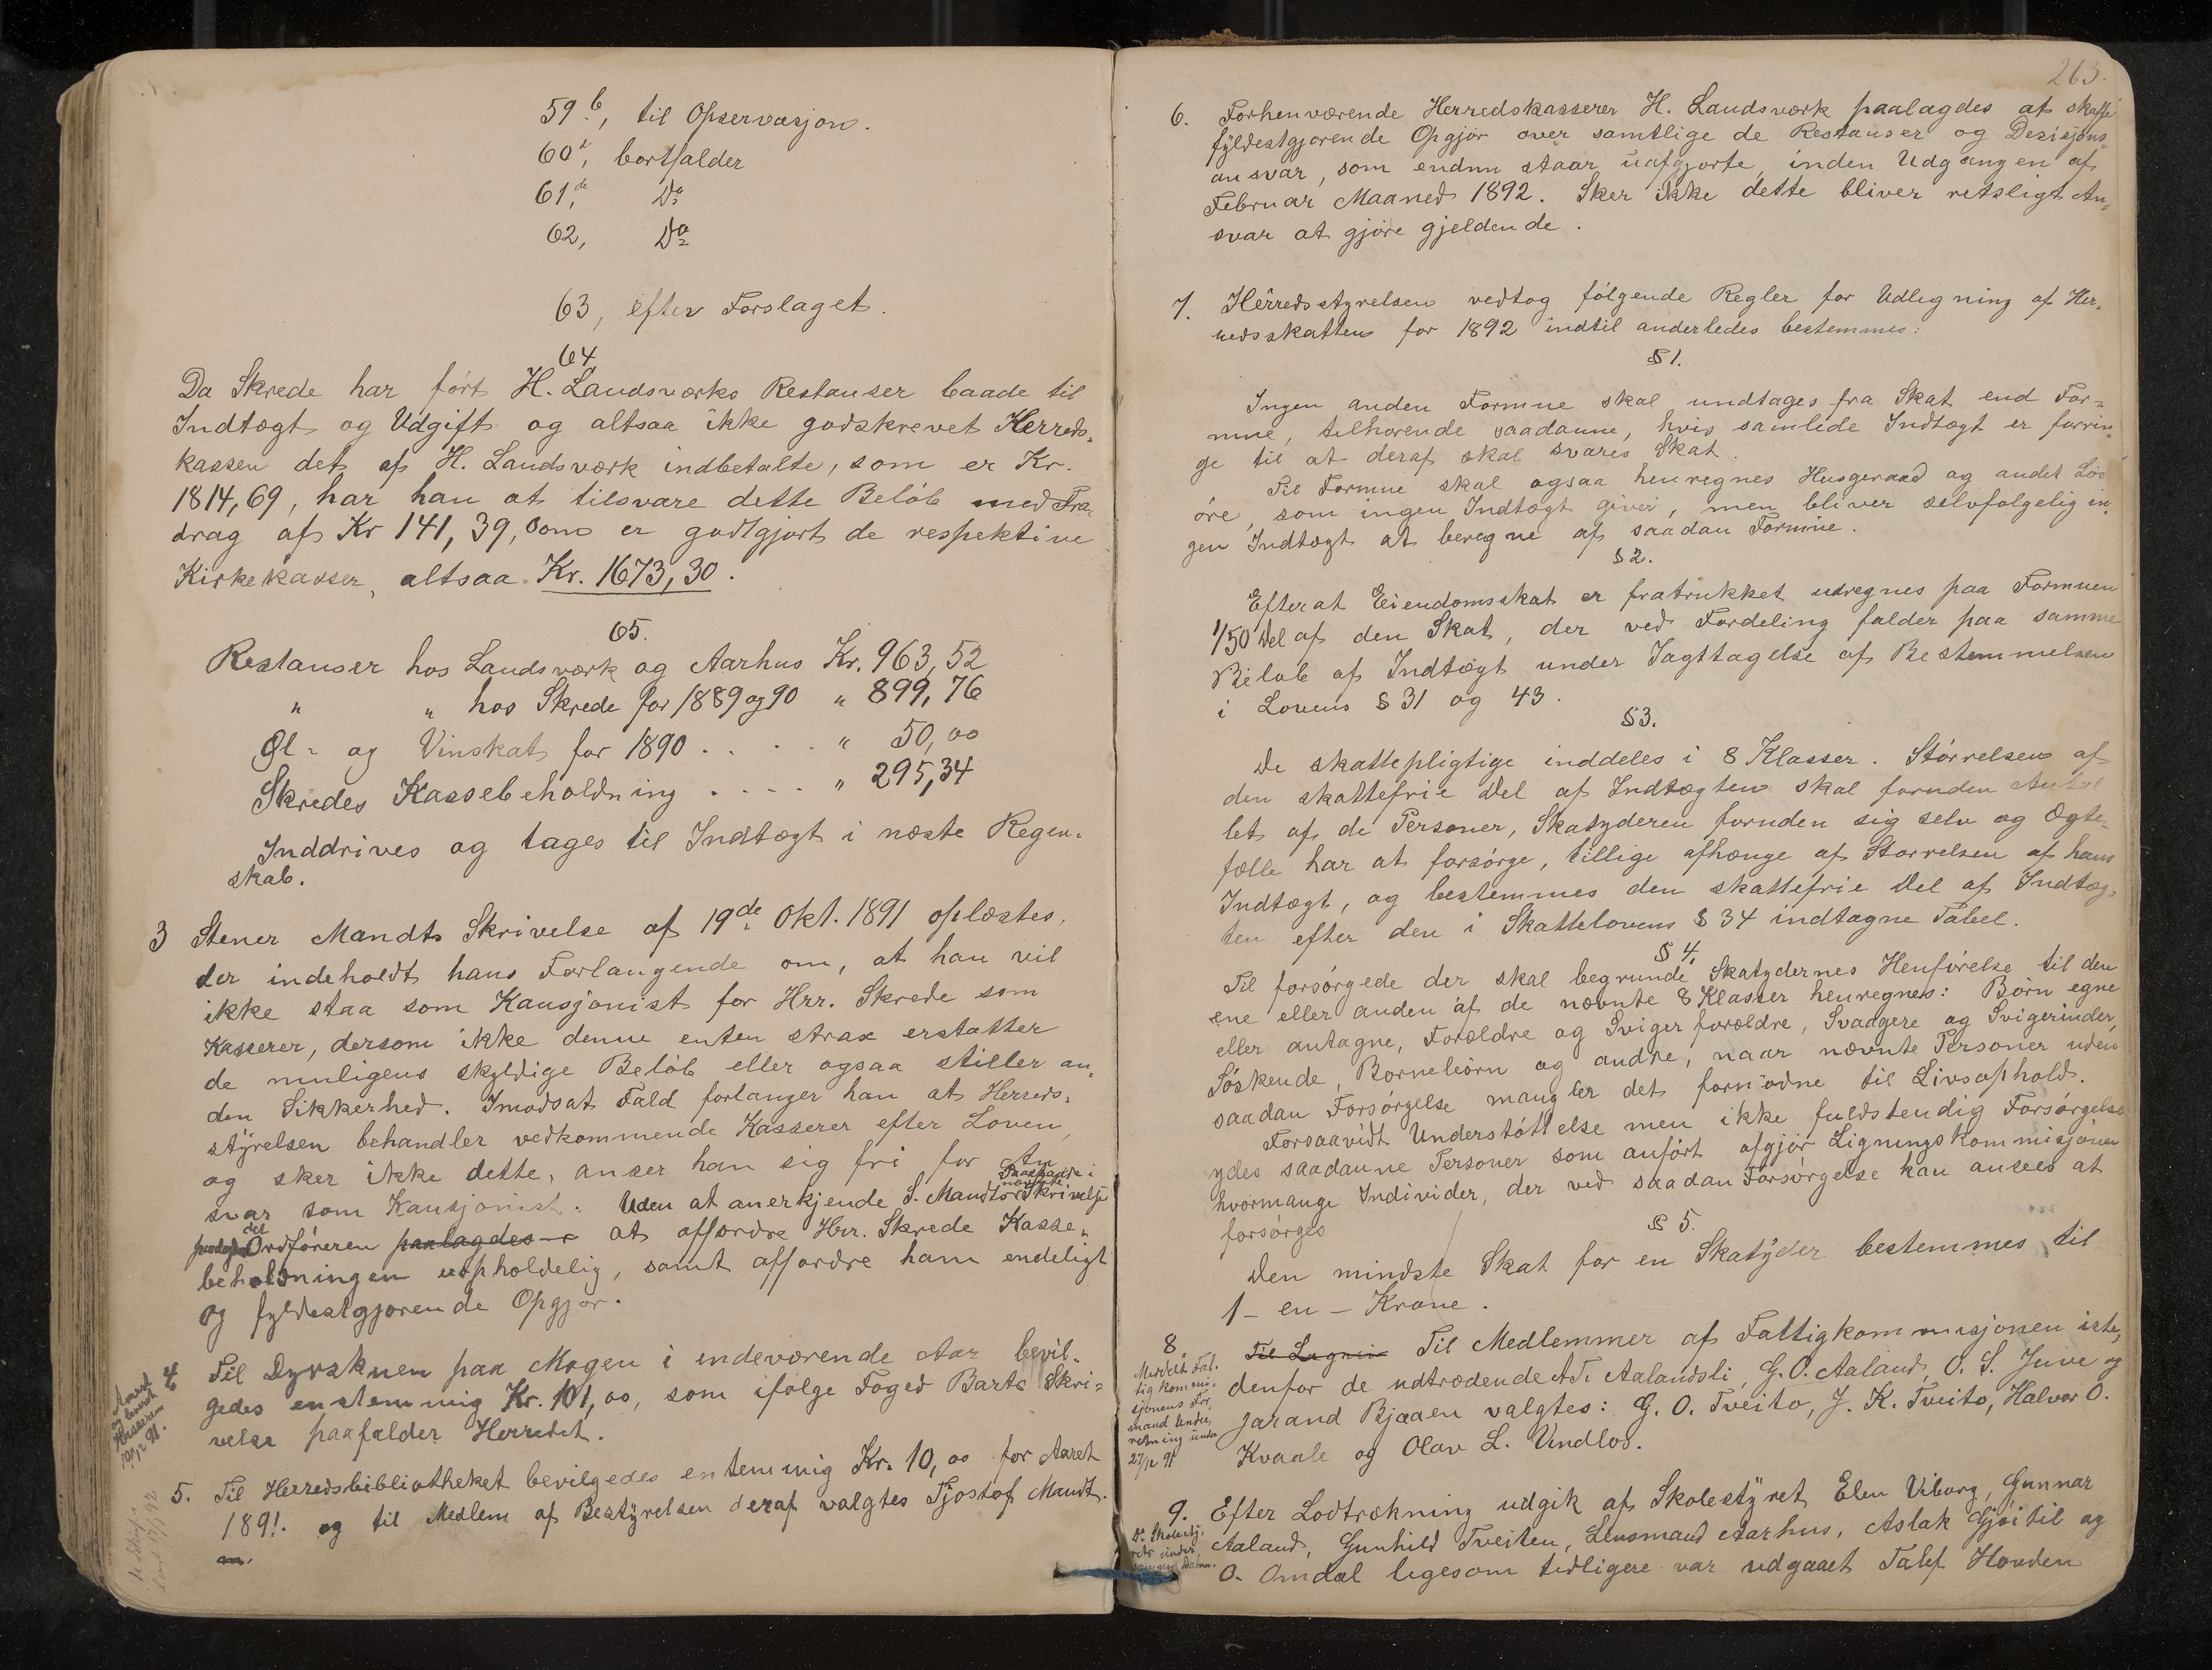 59 b, til Opservasjon.
60 d, bortfalder
61 de, Do
62, Do
63, efter Forslaget.
64,
Da Skrede har ført H. Landsværks Restanser baade til
Indtægt og Udgift og altsaa ikke godskrevet Herreds-
kassen det af H. Landsværk indbetalte, som er Kr.
1814,69, har han at tilsvare dette Beløb med Fra-
drag af Kr 141,39, som er godtgjort de respektive
Kirkekasser, altsaa Kr. 1673,30.
65.
Restanser hos Landsværk og Aarhus Kr. 963,52
" " hos Skrede for 1889 og 90 " 899,76
Øl- og Vinskat for 1890 . . . . " 50,00
Skredes Kassebeholdning . . . . " 295,34
Inddrives og tages til Indtægt i næste Regen-
skab.
3 Stener Mandts Skrivelse af 19de Okt. 1891 oplæstes,
der indeholdt hans Forlangende om, at han vil
ikke staa som Kausjonist for Hrr. Skrede som
Kasserer, dersom ikke denne enten strax erstatter
de muligens skyldige Beløb eller ogsaa stiller an-
den Sikkerhed. Imodsat Fald forlanger han at Herreds-
styrelsen behandler vedkommende Kasserer efter Loven,
og sker ikke dette, anser han sig fri for An
svar som Kausjonist. Uden at anerkjende S. Mandts Paastande i nævnte Skrivelse
det Ordføreren paalagdes at affordre Hrr. Skrede Kasse-
beholdningen uopholdelig, samt affordre ham endeligt
og fyldestgjørende Opgjør.
4 Til Dyrskuen paa Mogen i indeværende Aar bevil-
gedes enstemmig Kr. 101,00, som ifølge Foged Barts Skri-
velse paafalder Herredet.
5. Til Herredsbibliotheket bevilgedes entemmig Kr. 10,00 for Aaret
1891. og til Medlem af Bestyrelsen deraf valgtes Tjostof Mandt.
263.
6. Forhenværende Herredskasserer H. Landsværk paalagdes at skaffe
fyldestgjørende Opgjør over samtlige de Restanser og Desisjons-
ansvar, som endnu staar uafgjorte, inden Udgangen af
Februar Maaned 1892. Sker ikke dette bliver retsligt An-
svar at gjøre gjeldende.
7. Herredsstyrelsen vedtog følgende Regler for Udligning af Her-
redsskatten for 1892 indtil anderledes bestemmes:
§ 1.
Ingen anden Formue skal undtages fra Skat end For-
mue, tilhørende saadanne, hvis samlede Indtægt er forrin-
ge til at deraf skal svares Skat.
Til Formue skal ogsaa henregnes Husgeraad og andet Løs
øre, som ingen Indtægt giver, men bliver selvfølgelig in-
gen Indtægt at beregne af saadan Formue.
§ 2.
Efterat Eiendomsskat er fratrukket udregnes paa Formuen
1/50 Del af den Skat, der ved Fordeling falder paa samme
Beløb af Indtægt under Iagttagelse af Bestemmelsen
i Lovens § 31 og 43.
§ 3.
De skattepligtige inddeles i 8 Klasser. Størrelsen af
den skattefrie Del af Indtægten skal foruden Antal
let af de Personer, Skatyderen foruden sig selv og Ægte-
fælle har at forsørge, tillige afhænge af Størrelsen af hans
Indtægt, og bestemmes den skattefrie Del af Indtæg-
ten efter den i Skattelovens § 34 indtagne Tabel.
§ 4.
Til forsørgede der skal begrunde Skatydernes Henførelse til den
ene eller anden af de nævnte 8 Klasser henregnes: Børn egne
eller antagne, Forældre og Svigerforældre, Svaagere og Svigerinder,
Søskende, Børnebørn og andre, naar nævnte Personer uden
saadan Forsørgelse mangler det fornødne til Livsophold.
Forsaavidt Understøttelse men ikke fuldstendig Forsørgelse
ydes saadanne Personer som anført afgjør Ligningskommisjonen
hvormange Individer, der ved saadan Forsørgelse kan ansees at
forsørges
§ 5.
Den mindste Skat for en Skatyder bestemmes til
1 - en - Krone.
8 Til Medlemmer af Fattigkommisjonen iste,
denfor de udtrædende A. T. Aalandsli, G. O. Aaland, O. S. Juve og
Jarand Bjaaen valgtes: G. O. Tveito, J. K. Tveito, Halvor O.
Kvaale og Olav L. Vindlos.
Meddelt Fat-
tigkommi-
sjonens For-
mand Under-
retning under
27/12 91
9. Efter Lodtrækning udgik af Skolestyret Elen Viborg, Gunnar
Aaland, Gunhild Tveiten, Lensmand Aarhus, Aslak Gjøitil og
O. Omdal ligesom tidligere var udgaaet Talef Hovden
Do Skolesty-
ret under
samme Datum.